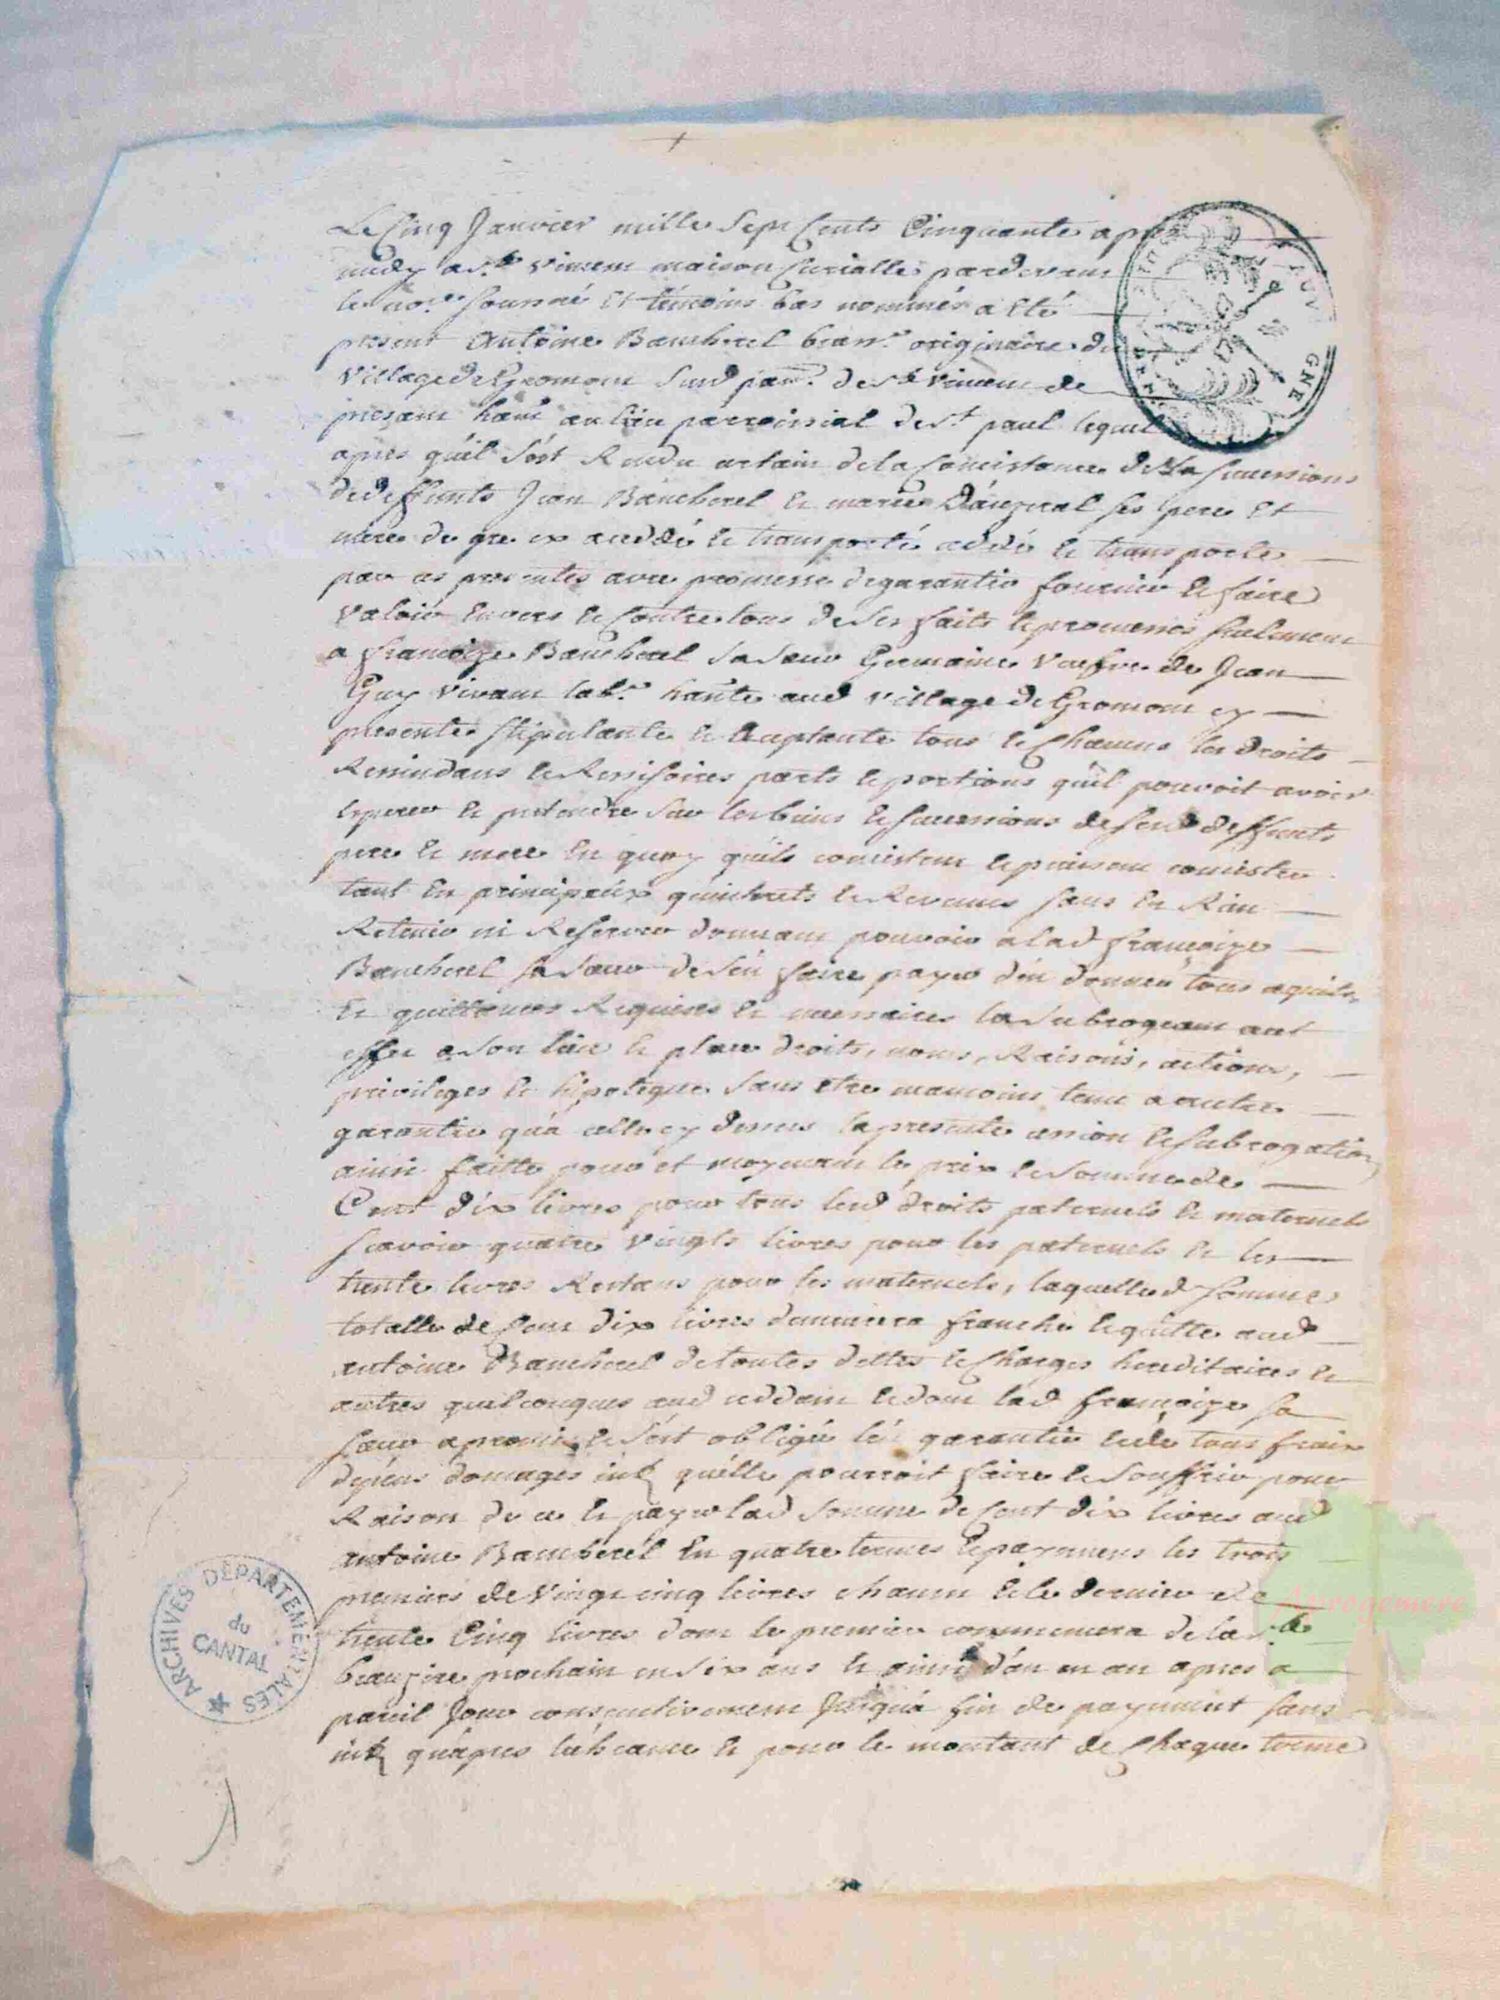 Le Cinq Janvier mille Sept Cents Cinquante apres
midy a St. Vincent maison Curialle pardevant
le nore. Soussné et témoins bas nommés a été
present Antoine Baucherel brass. originaire du
Village de Gromont Susd parr. de St Vincent de
presant habt au lieu parroissial de St. paul lequel
apres qu'il s'ést Rendu certain de la Consistance de la Successions
de deffunts Jean Baucherel et marie Dauzeral ses pere et
mere de gre a ceddé et transporté cedde et transporte
par ces presentes avec promesse de garantir fournir et faire
Valoir Envers et Contre tous de ses faits et promesses seulement
a françoize Baucherel Sa Sœur Germaine Veufve de Jean
Guy Vivant labr. habte aud Village de Gromont cy
presente stipulante et Acceptante tous et Chacuns les droits
Ressindans et Ressisoires parts et portions qu'il pouvoit avoir
esperer et pretendre Sur les biens et successions de sesd deffunts
pere et mere En quoy qu'ils consistent et puissent consister
tant En principaux qu'intrets et Revenus sans En Rien
Retenir ni Reserver donnant pouvoir a lad françoize
Baucherel sa Sœur de s'en faire payer d'en donner tous aquits
et quittances Requises et necessaires la Subrogeant aud
effet a Son lieu et place droits, noms, Raisons, actions,
privileges et hipoteque Sans etre neanmoins tenu a autre
garantie qu'a celle cy dessus la presente cession et subrogation
ainsi faitte pour et moyennant le prix et Somme de
Cent dix livres pour tous lesd droits paternels et maternels
scavoir quatre Vingts livres pour les paternels et les
trente livres Restans pour les maternels, laquelle d somme
totalle de Cent dix livres demurera franche et quitte aud
antoine Baucherel de toutes dettes et Charges hereditaires et
autres quelconques aud ceddant et dont lad françoize sa
sœur a promis et s'est obligée l'en garantir et de tous frais
depens domages int qu'elle pourroit faire et Souffrir pour
Raison de ce et payer lad Somme de Cent dix livres aud
antoine Baucherel En quatre termes et payemens les trois
premiers de Vingt cinq livres chacun et le dernier de
trente Cinq livres dont le premier commencera de la St
beauzire prochain en Six ans et ainsi d'an en an apres a
pareil Jour consecutivement Jusqu'a fin de payement sans
int qu'apres l'echeance et pour le montant de Chaque terme
ARCHIVES DÉPARTEMENTALES
du
CANTAL